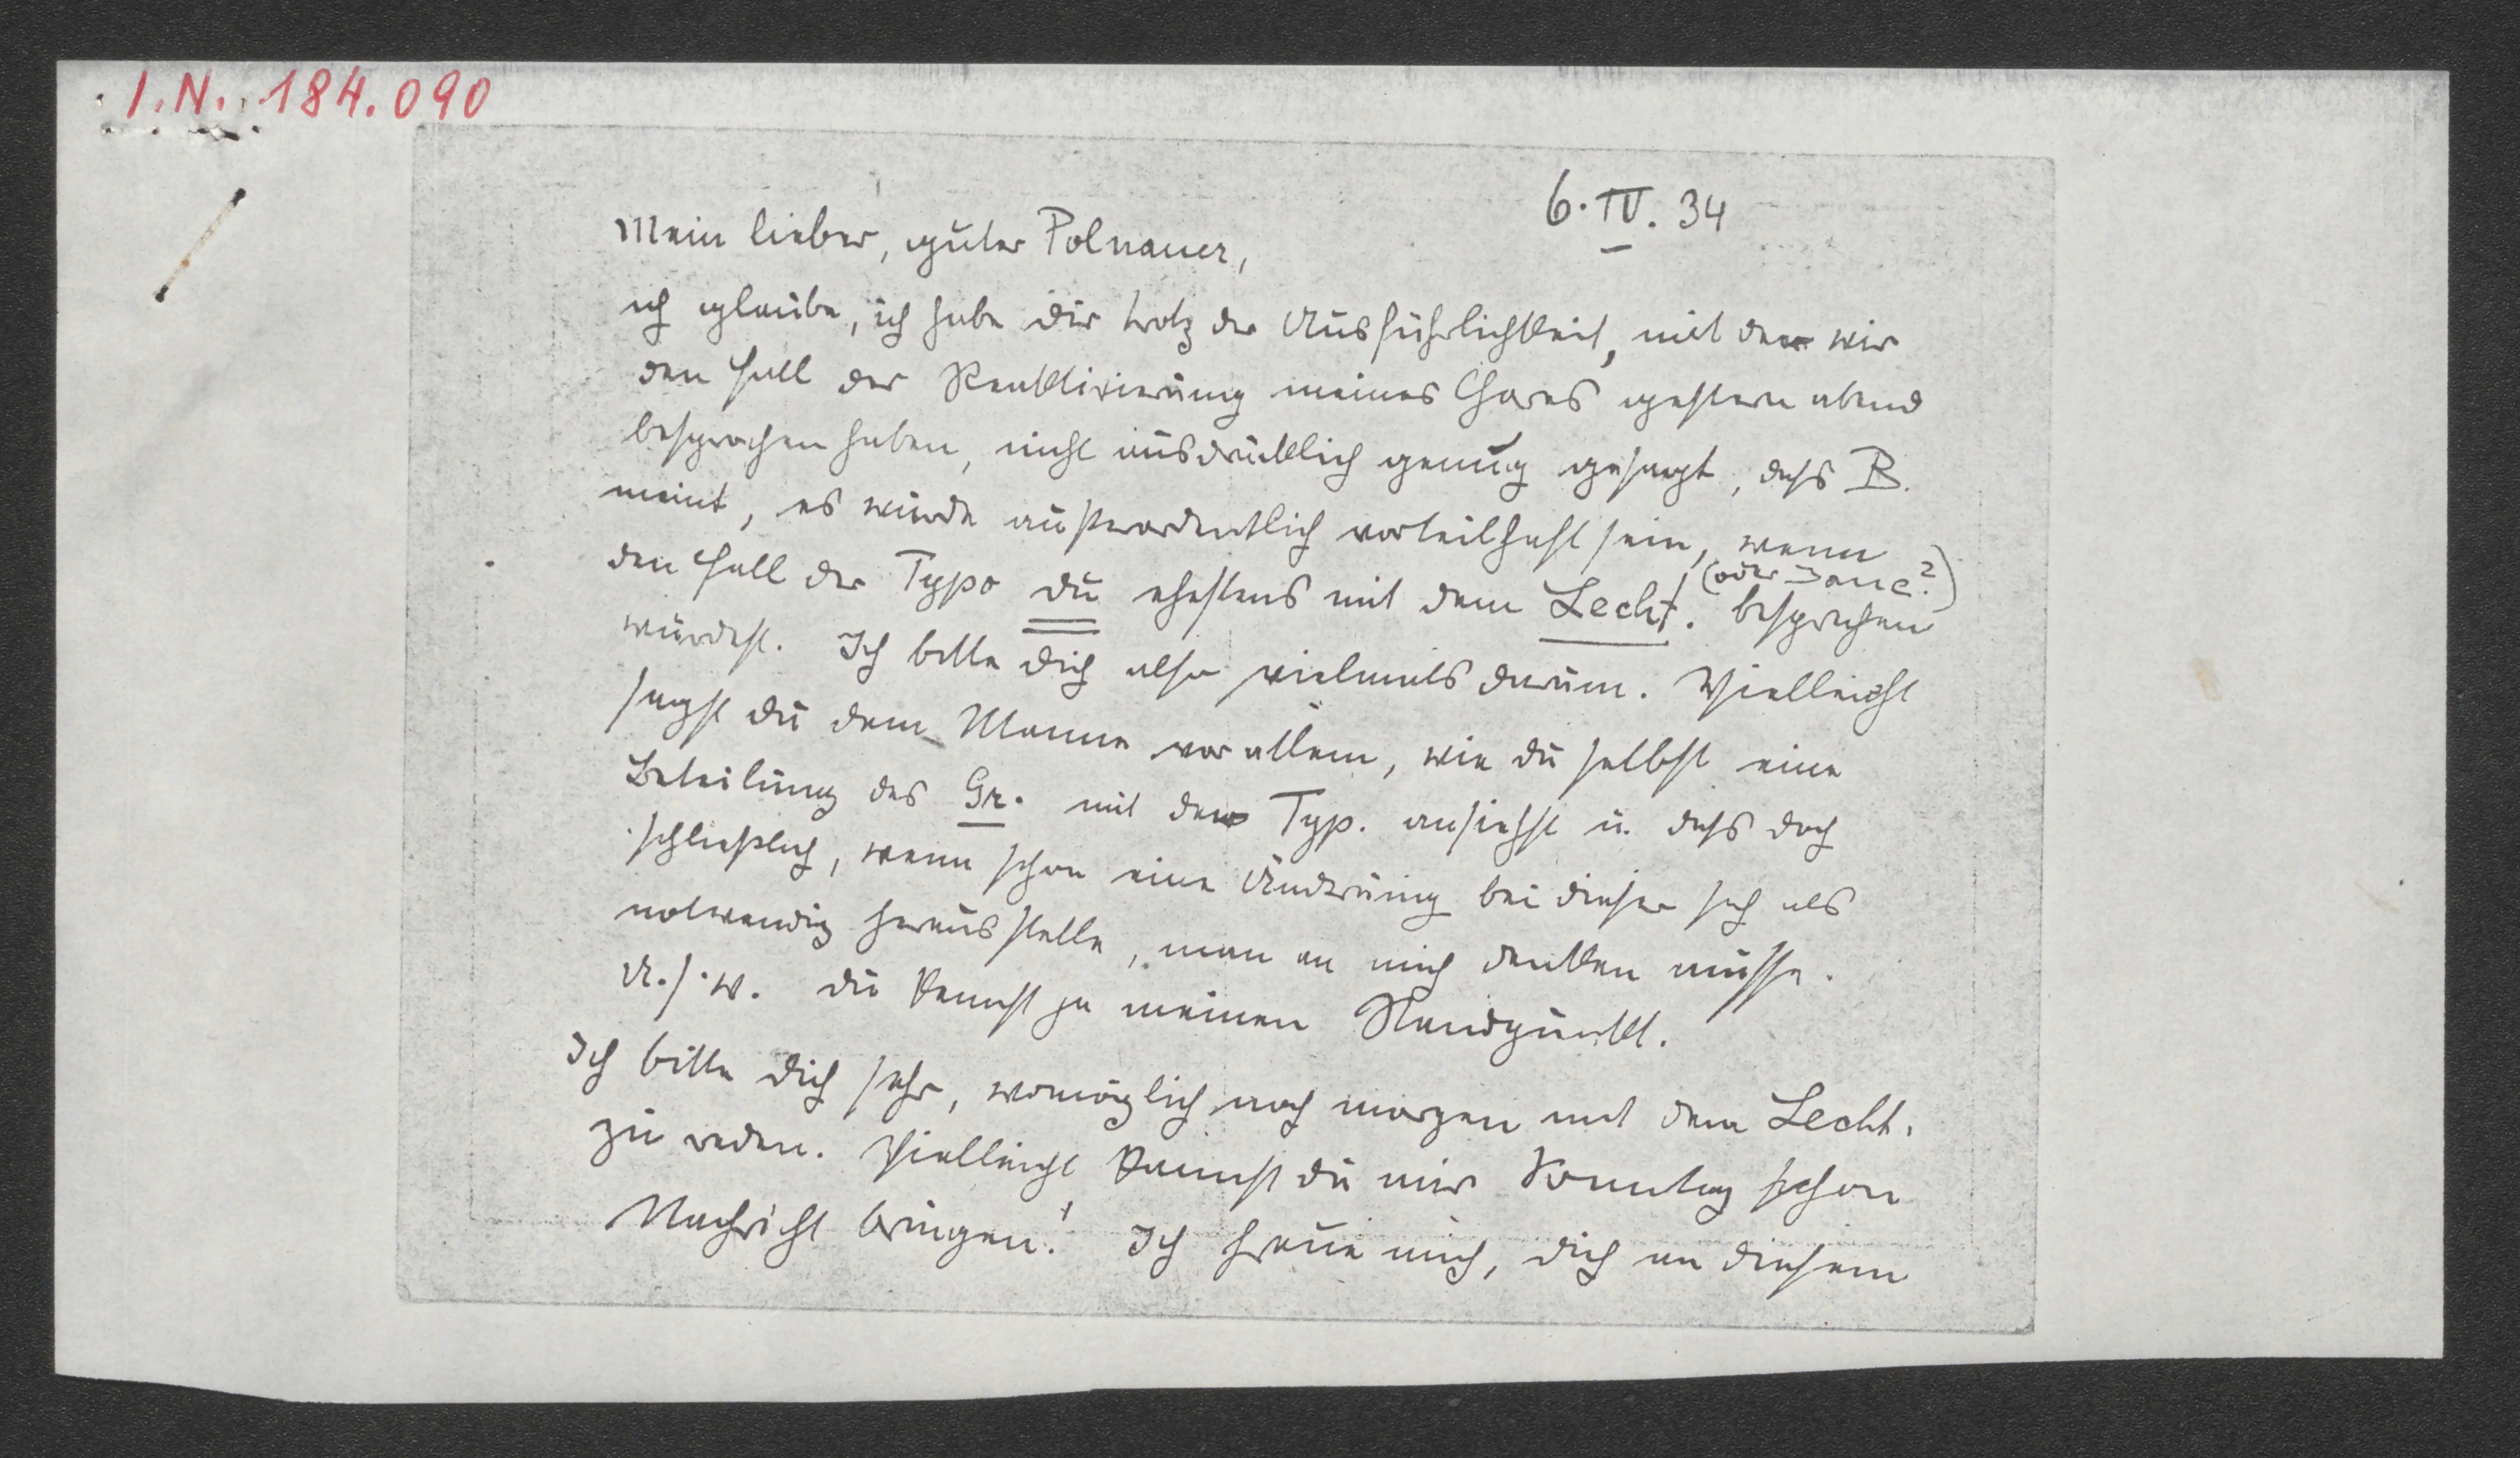 I.N. 184.090
6. IV. 34
Mein lieber, guter Polnauer,
ich glaube, ich habe dir trotz der Ausführlichkeit, mit der wir
den Fall der Reaktivierung meines Chores gestern abend
besprochen haben, nicht ausdrücklich genug gesagt, dass B.
meint, es würde außerordentlich vorteilhaft sein, wenn
(oder Janc?)
den Fall der Typo du ehestens mit dem Lecht. besprechen
würdest. Ich bitte dich also vielmals darum. Vielleicht
sagst du dem Manne vor allem, wie du selbst eine
Beteilung des Gr. mit der Typ. ansiehst u. dass doch
schließlich, wenn schon eine Änderung bei dieser sich als
notwendig herausstelle, man an mich denken müsse.
U.s.w. du kennst ja meinen Standpunkt.
Ich bitte dich sehr, womöglich noch morgen mit dem Lecht.
zu reden. Vielleicht kannst du mir Sonntag schon
Nachricht bringen! Ich freue mich, dich an diesem